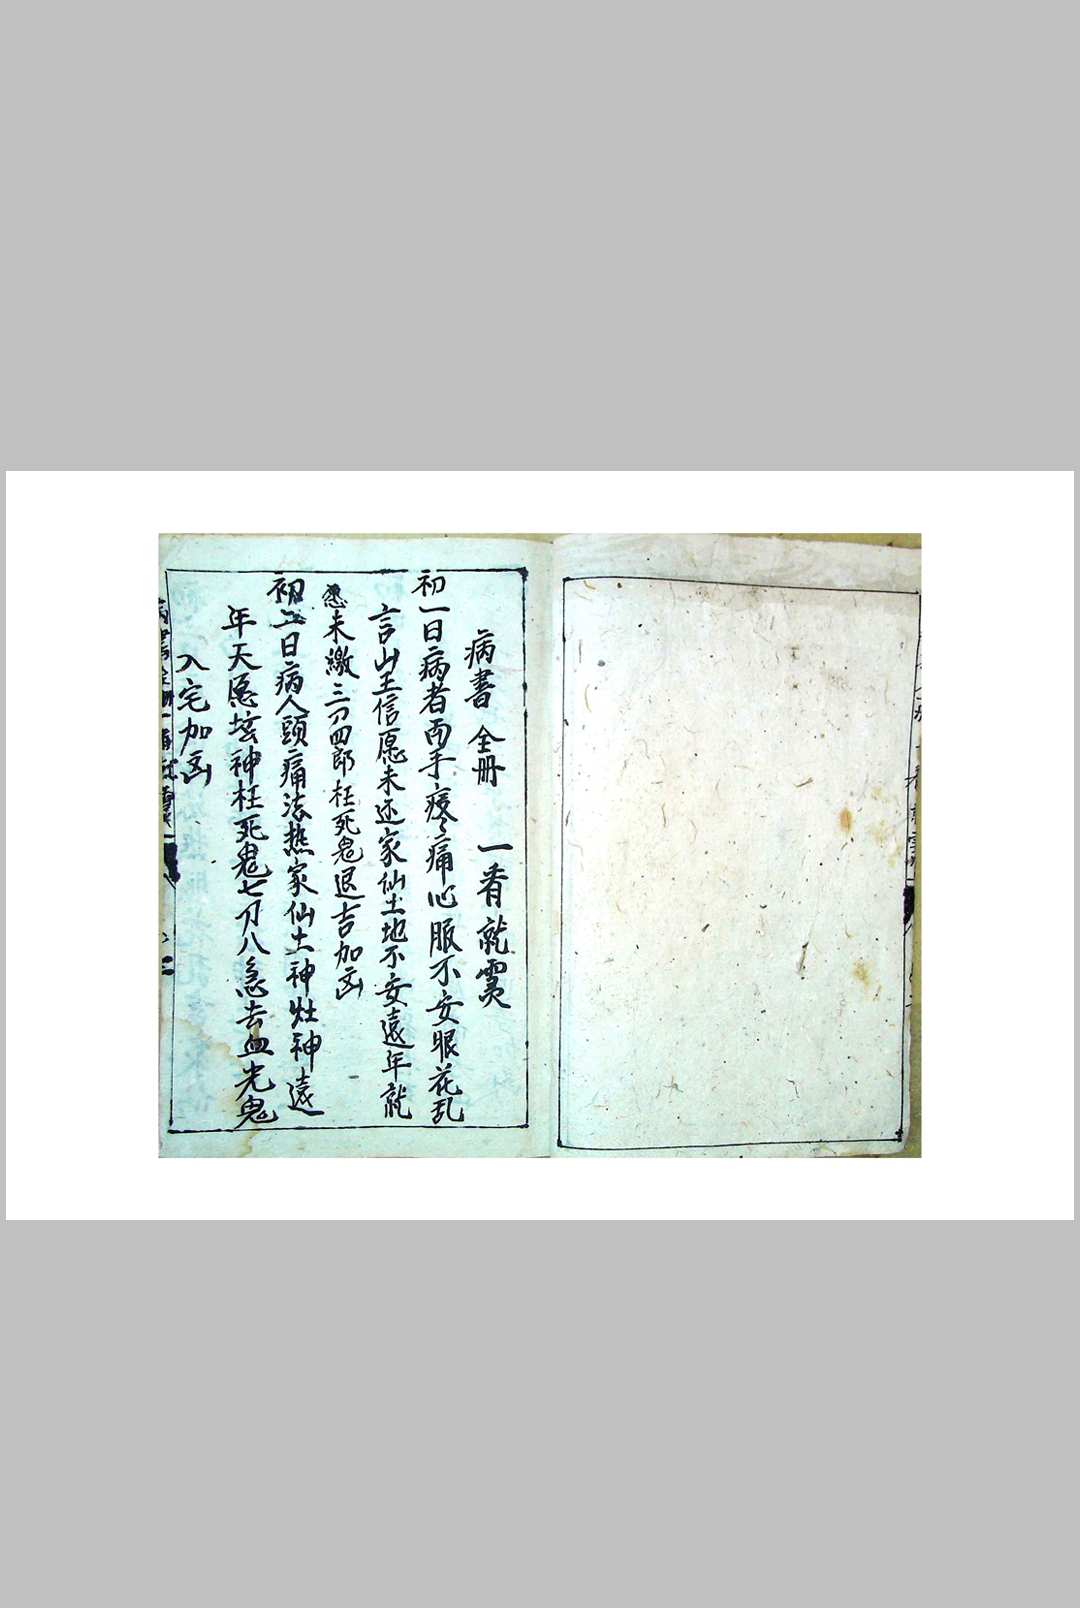 病書 全册 一看就靈
初一日病者両手痠々痛心服不安眼花乱
言山王信愿未还家仙土地不安遠年就
愿未繳三刀四郎枉死鬼退吉加凶
初二日病人頭痛法热家仙土神灶神遠
年天愿坛神枉死鬼七刀八急去血光鬼
入宅加凶